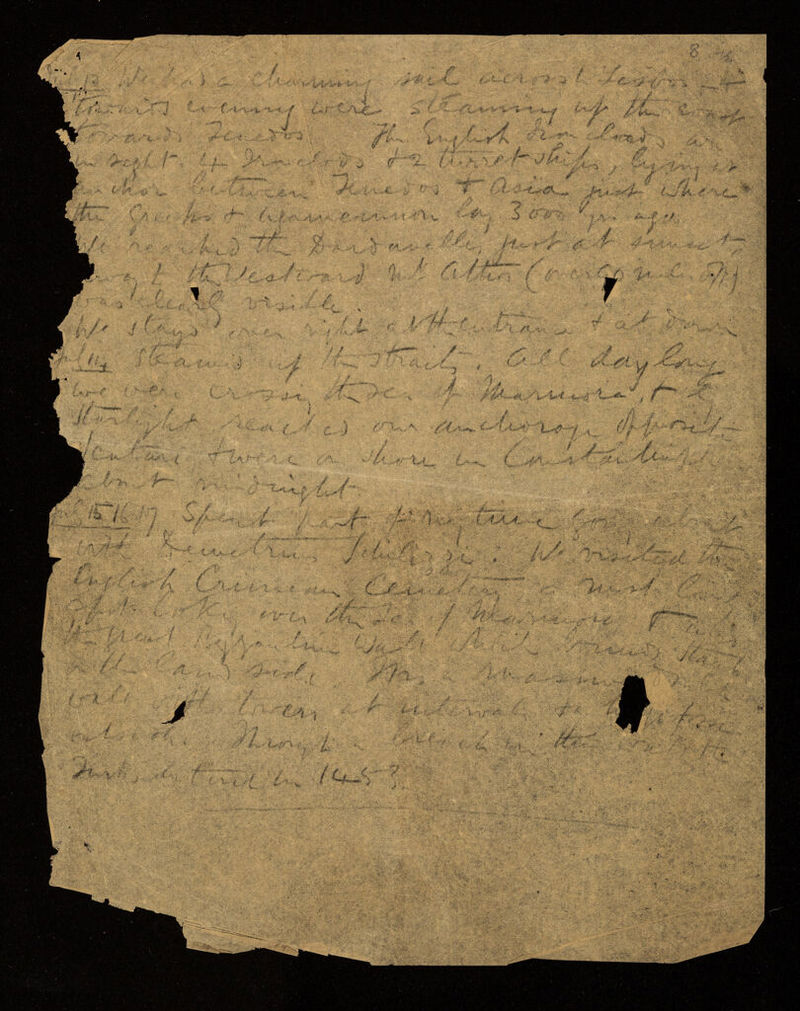 8
We had a charming sail across to Lesbos &
towards evening were steaming up the coast
towards Tenedos The English Ironclads are
in sight. 4 Ironclads & 2 turret ships, lying at
anchor between Tenedos & Asia just where
the Greeks & Agamemnon lay 3000 yrs ago.
We reached the Dardanelles just at sunset,
away to the Westward Mt Athos (over 80 miles off)
was clearly visible.
We stayed over night at the entrance & at dawn
steamed up the straits. All day long
we were crossing the Sea of Marmora, & by
starlight reached our anchorage opposite
Scutari & were on shore in Constantinople
about midnight.
15 16 17 Spent part of my time going about
with Demetrius Schilizzi: We visited the
English Crimean Cemetery a most
spot looking over the Sea of Marmora &
the great Byzantine Wall which bounds
on the land side. It is a
wall with towers at intervals &
outside. Through a breach in this wall the
Turks entered in 1453.